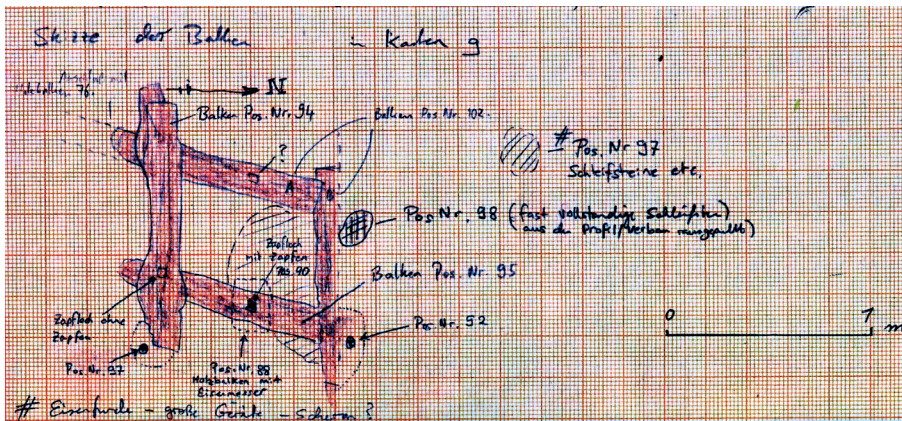 Skizze der Balken in Kasten 9
N
76.
Balken Pos. Nr. 94
Balken Pos Nr. 102.
?
A
B
# Pos. Nr 97
Schleifsteine etc.
Pos Nr. 98 (fast vollständige
aus dem Profil/Verbau
Zapfloch
mit Zapfen
Balken Pos. Nr 95
Zapfloch ohne
Zapfen
Pos. Nr. 92
Pos Nr. 97
Pos. Nr. 88
Holzbalken mit
Eisenmesser
0 1 m
# Eisenfunde – große Geräte – Scheren?